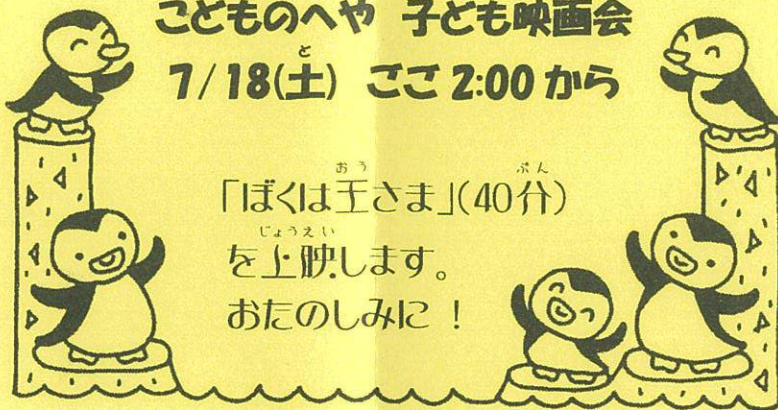 こどものへや 子ども映画会
7/18(土) ごご 2:00 から
「ぼくは王さま」(40分)
を上映します。
おたのしみに！